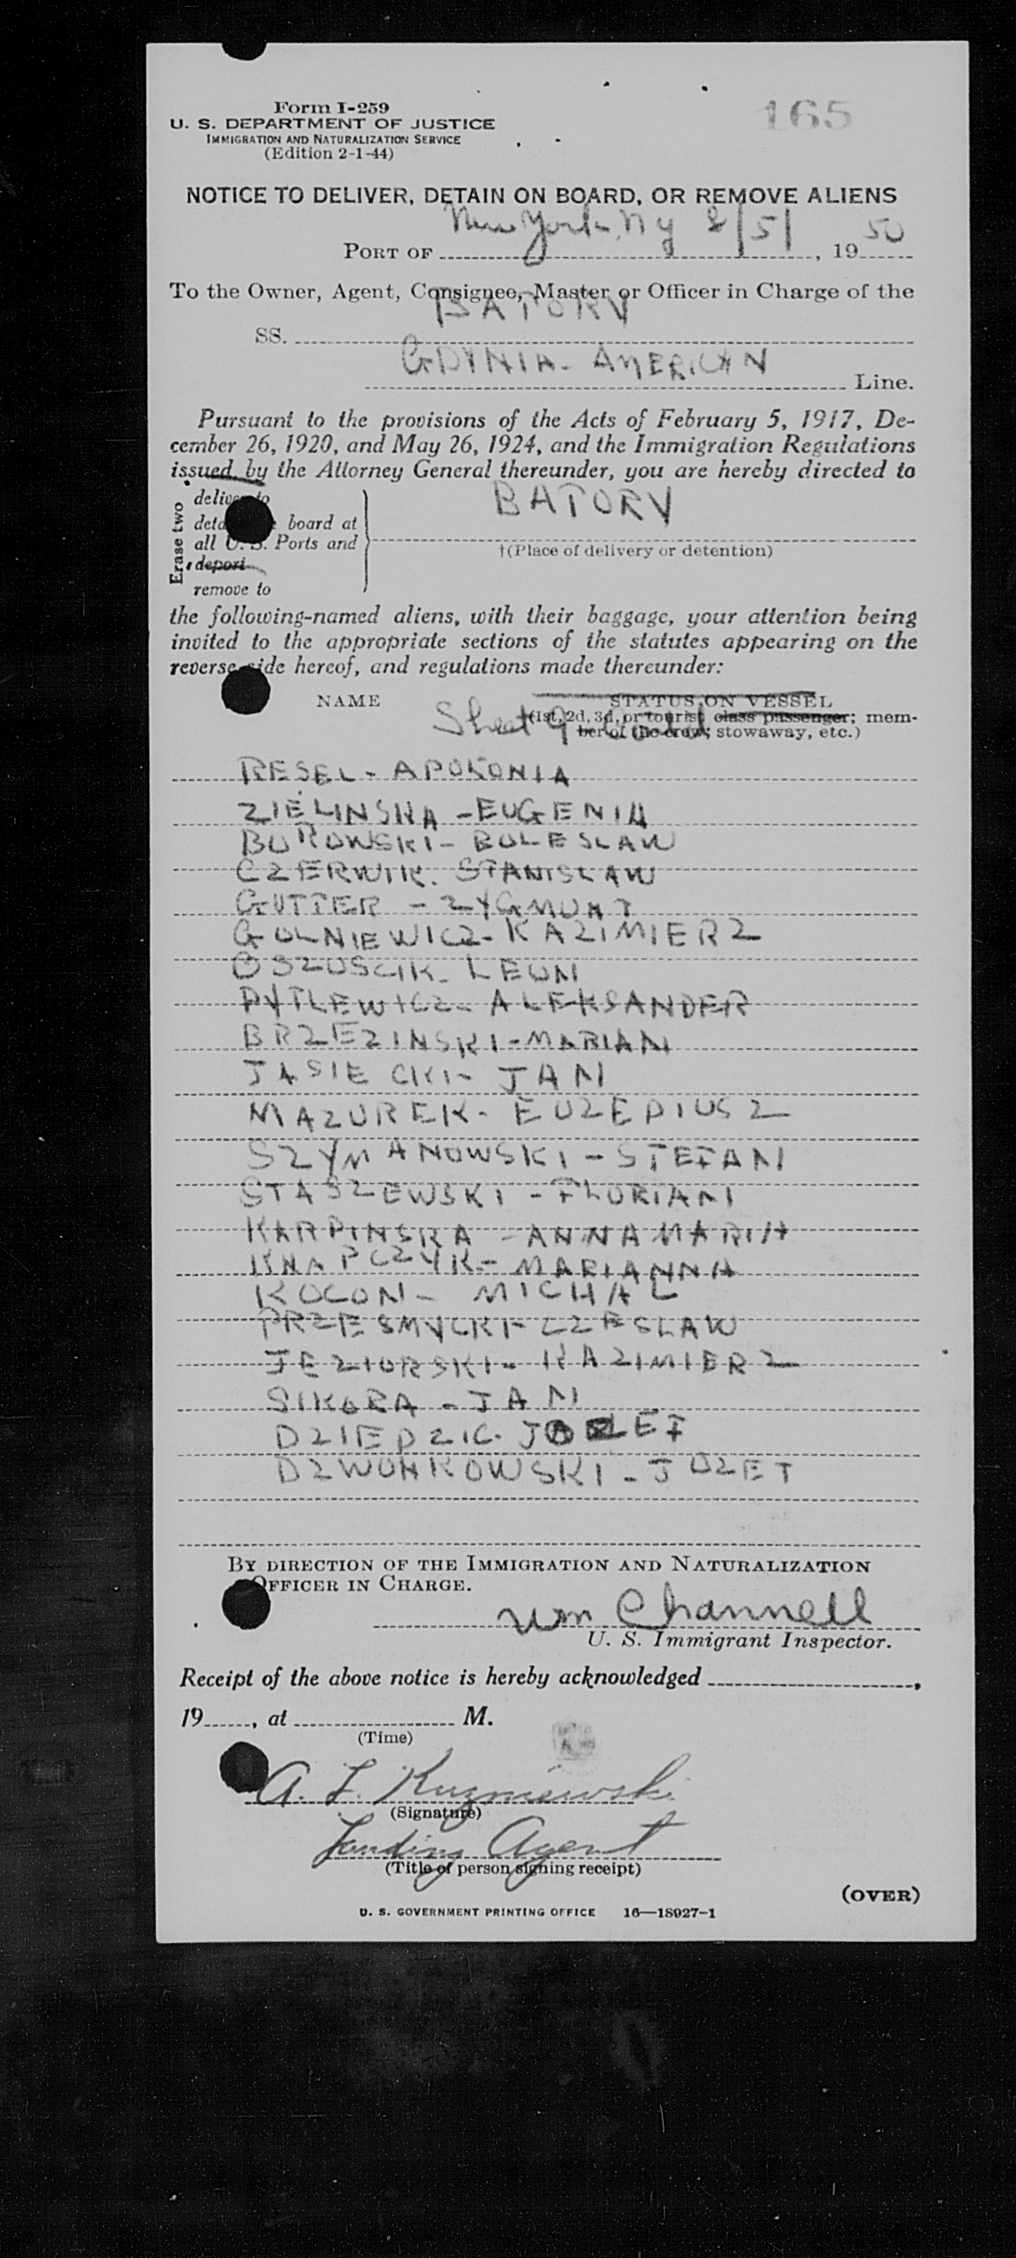 165
Form I-259
U. S. DEPARTMENT OF JUSTICE
IMMIGRATION AND NATURALIZATION SERVICE
(Edition 2-1-44)
NOTICE TO DELIVER, DETAIN ON BOARD, OR REMOVE ALIENS
PORT OF New York, NY 8/5/, 1950
To the Owner, Agent, Consignee, Master or Officer in Charge of the
SS. BATORY
GDYNIA-AMERICAN Line.
Pursuant to the provisions of the Acts of February 5, 1917, De-
cember 26, 1920, and May 26, 1924, and the Immigration Regulations
issued by the Attorney General thereunder, you are hereby directed to
Erase two
deliver to
board at
all U. S. Ports and
deport
remove to
BATORY
†(Place of delivery or detention)
the following-named aliens, with their baggage, your attention being
invited to the appropriate sections of the statutes appearing on the
reverse side hereof, and regulations made thereunder:
NAME STATUS ON VESSEL
Sheet 9
(1st, 2d, 3d, or tourist class passenger; mem-
ber of the crew; stowaway, etc.)
RESEL - APOLONIA
ZIELINSKA - EUGENIA
BOROWSKI - BOLESLAW
CZERWIK. STANISLAW
GUTTER - ZYGMUNT
GOLNIEWICZ - KAZIMIERZ
OSZUSCIK - LEON
PYTLEWICZ - ALEKSANDER
BRZEZINSKI - MARIAN
JASIECKI - JAN
MAZUREK - EUZEDIUSZ
SZYMANOWSKI - STEFAN
STASZEWSKI - FLORIAN
KARPINSKA - ANNA MARIA
KNAPCZYK - MARIANNA
KOCON - MICHAL
PRZESMYCKI - CZESLAW
JEZIORSKI - KAZIMIERZ
SIKORA - JAN
DZIEDZIC - JOZEF
DZWONKOWSKI - JOZEF
BY DIRECTION OF THE IMMIGRATION AND NATURALIZATION
OFFICER IN CHARGE.
Wm Channell
U. S. Immigrant Inspector.
Receipt of the above notice is hereby acknowledged ,
19 , at M.
(Time)
A. L. Kuzniewski
(Signature)
Landing Agent
(Title of person signing receipt)
(OVER)
U. S. GOVERNMENT PRINTING OFFICE 16—18927-1